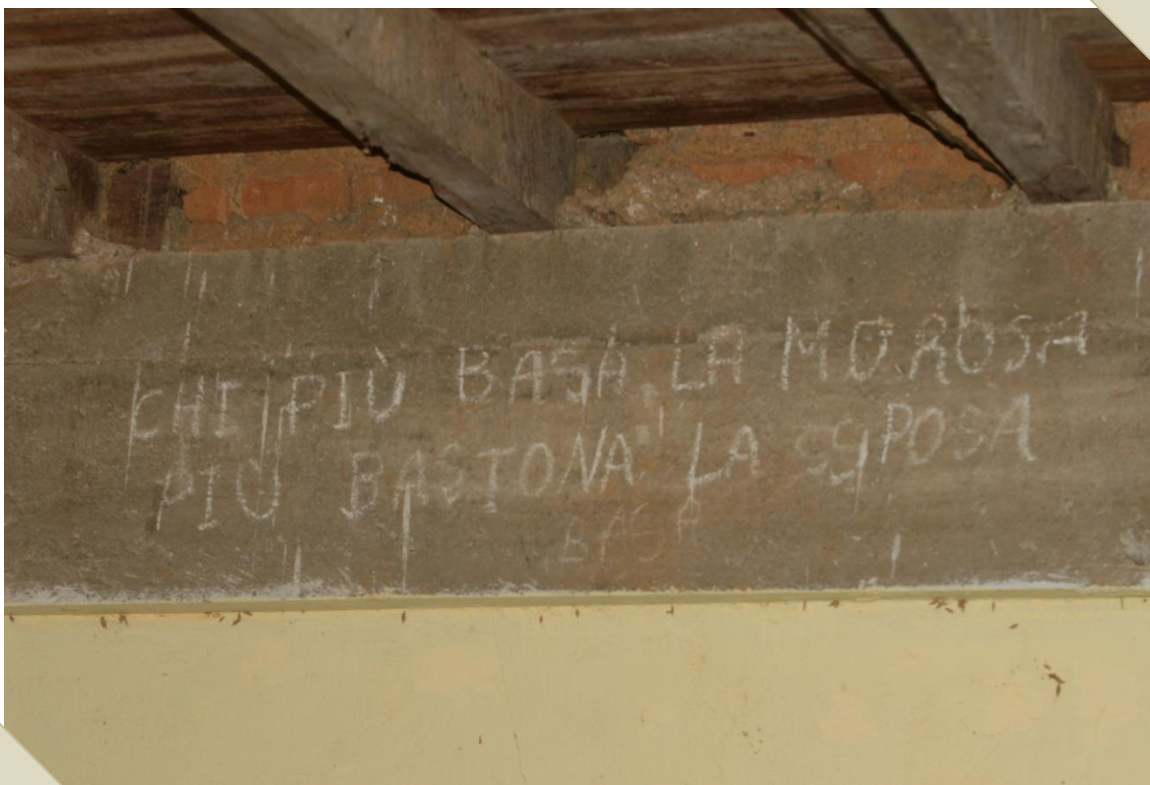 CHI PIÙ BASA LA MOROSA
PIÙ BASTONA LA SPOSA
BASA